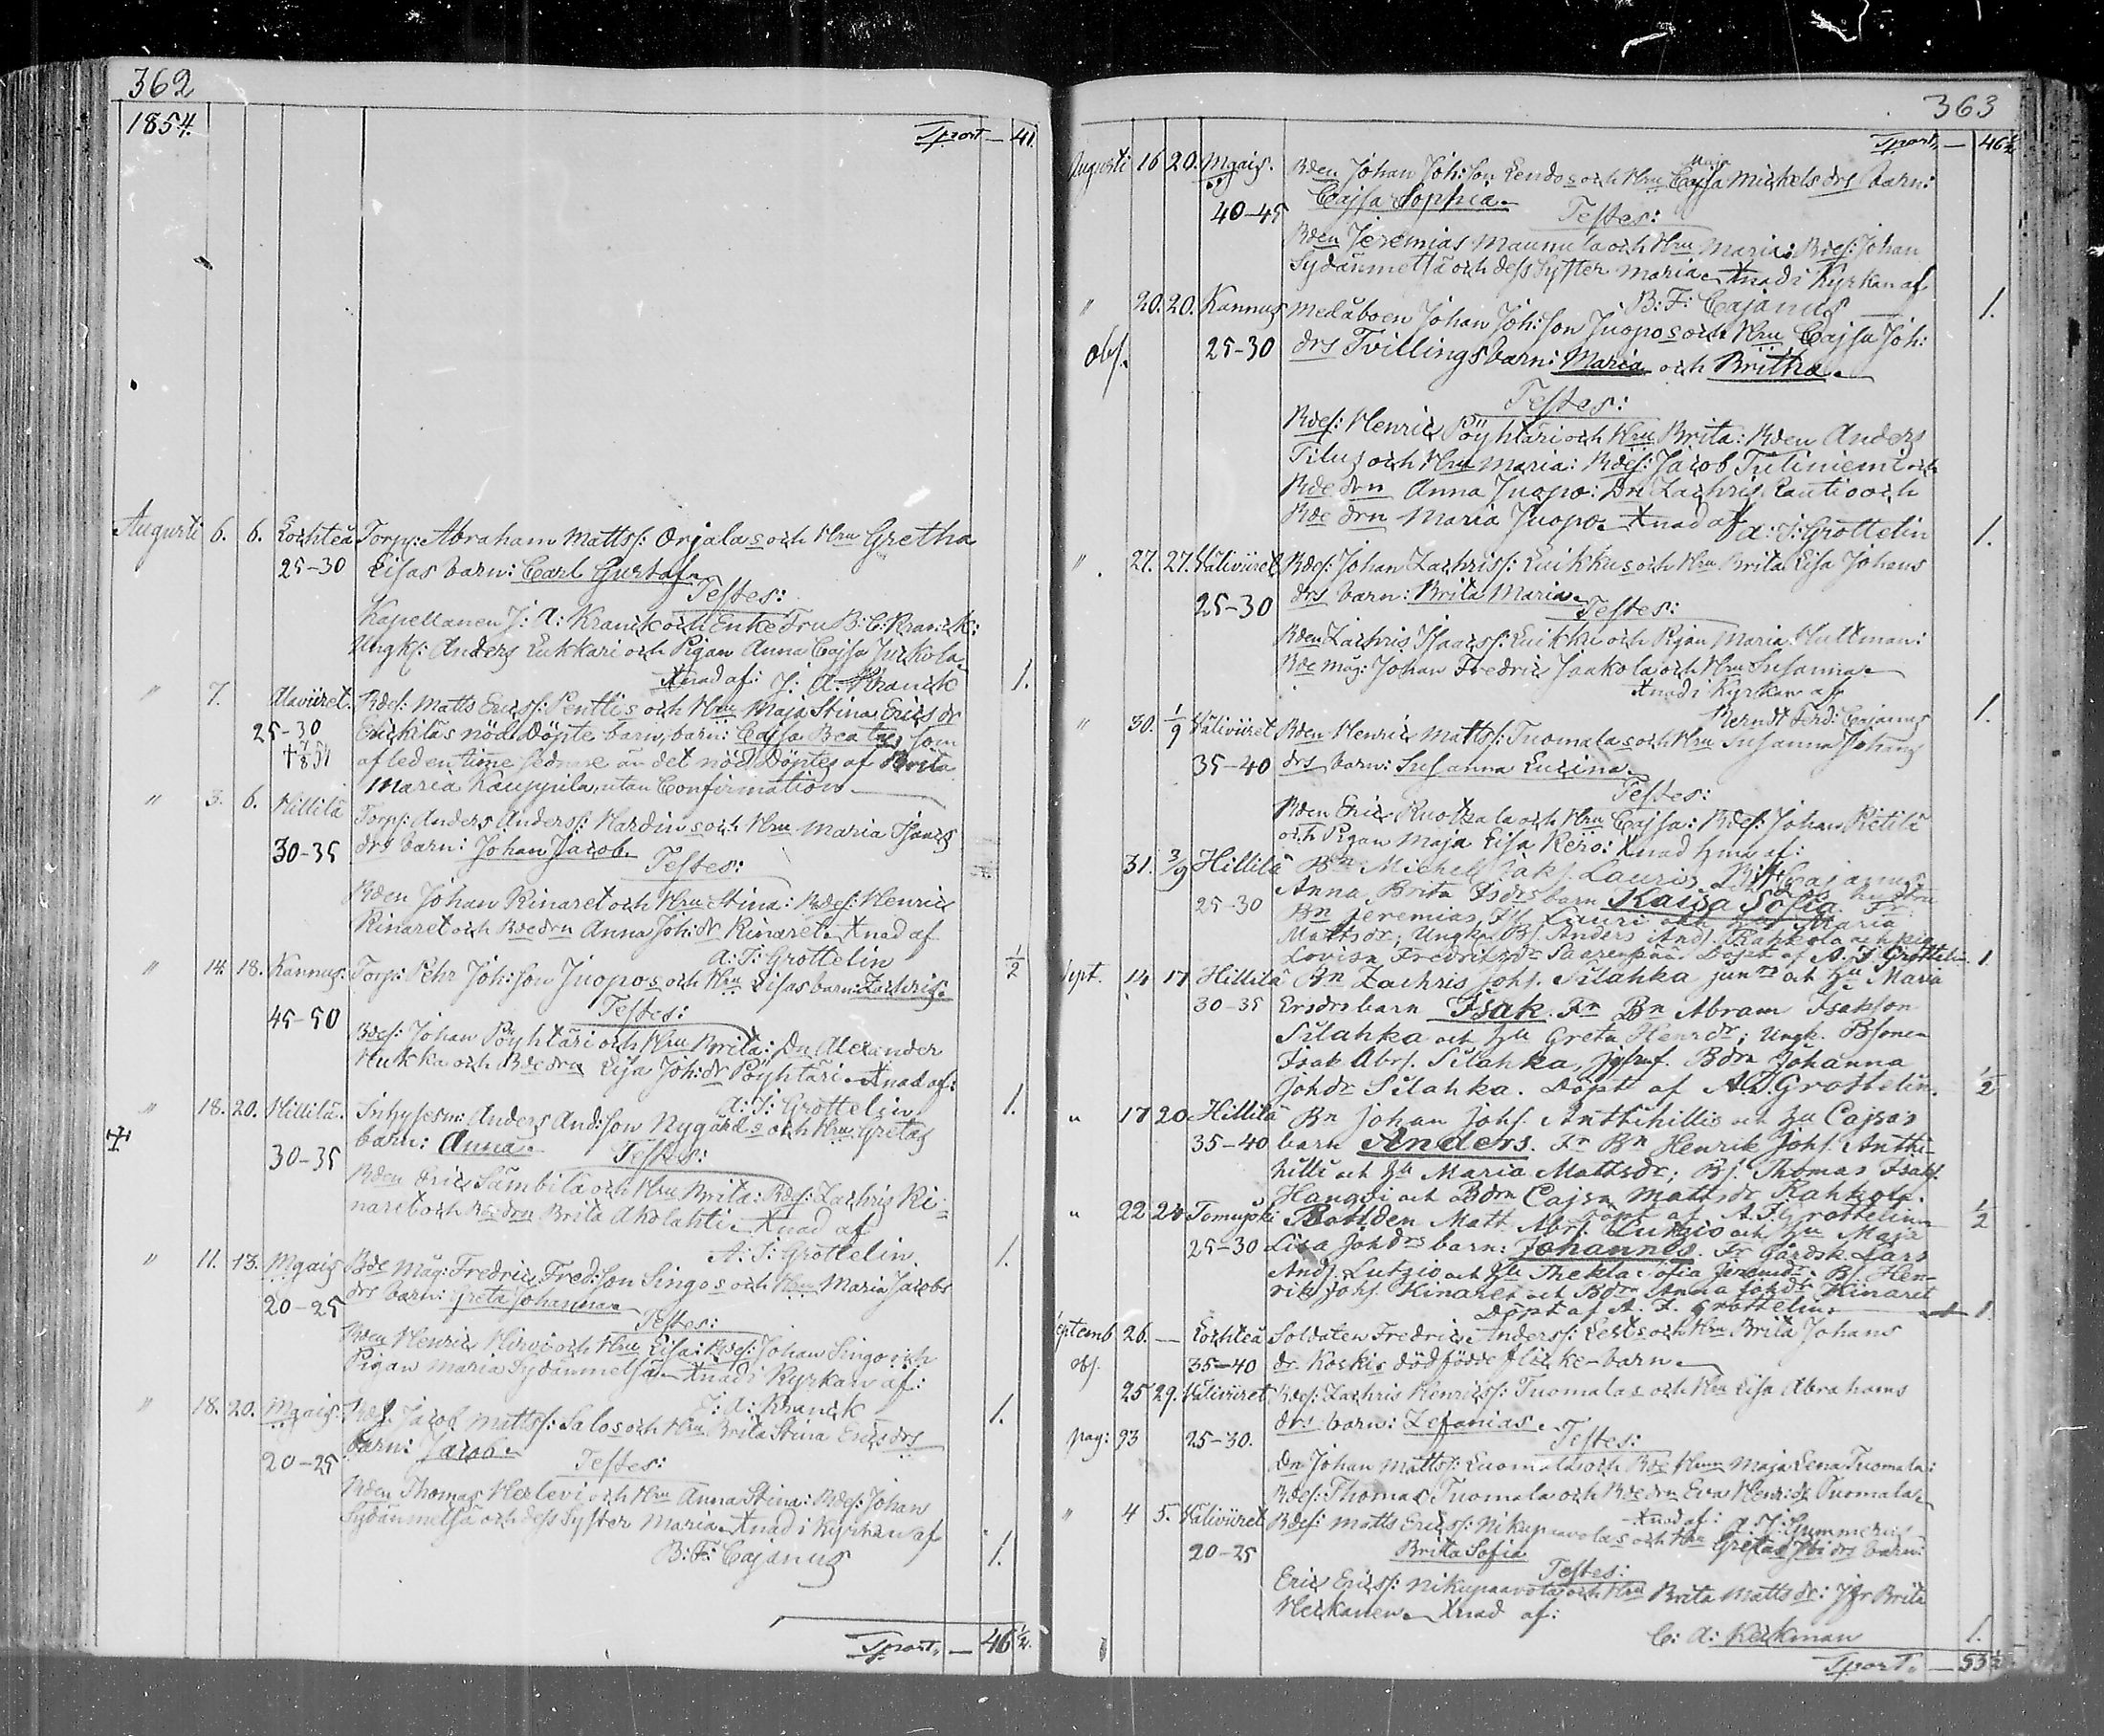 362
1854.
Tsport — 41.
Augusti 6. 6. Lochteå Torp: Abraham Mattsf: Orjalas och Hru Gretha
25-30 Lisas barn: Carl Gustaf.
Testes:
Kapellanen J: A: Kranck och Enke Fru B: C: Kranck:
Ungk: Anders Lukkari och Pigan Anna Cajsa Jurkola
Xnad af: J: A: Kranck 1.
" 7. Alaviiret. Bdes: Matts Ericsf: Penttis och Hru Maja Stina Erics dr
25-30 nöd Döpte barn, barn: Cajsa Beata, som
† 7/8 54 afled en timme sednare än det nöd Döptes af Brita
Maria Kauppila, utan Confirmation
" 3. 6. Hillilä Torp: Anders Andersf: Hardins och Hru Maria Isaacs
30-35 drs barn: Johan Jacob.
Testes:
Bden Johan Rinaret och Hru Stina: Bdes: Henric
Rinaret och Bdedrn Anna Joh: dr Rinaret. Xnad af
A: F: Grottelin 1/2
" 14. 18. Kannus: Torp: Pehr Joh: son Juopos och Hru Lisas barn: Zachris.
45-50 Testes:
Bdes: Johan Pöyhtäri och Hru Brita: Dn Alexander
Hukka och Bdedrn Lisa Joh: dr Pöyhtäri. Xnad af:
A: F: Grottelin 1.
" 18. 20. Hillilä. Inhyfesm: Anders And: son Nygårds och Hru Gretas
barn: Anna.
30-35 Testes:
Bden Eric Sämbilä och Hru Brita: Bdes: Zachris Ri=
naret och Bdedrn Brita Akolahti. Xnad af
A: F: Grottelin. 1.
" 11. 13. Mgais Bde Måg: Fredric Fred: son Singos och Hru Maria Jacobs
20-25 drs barn: Greta Johanna.
Testes:
Bden Henric Hirvi och Hru Lisa: Bdes: Johan Singo och
Pigan Maria Sydänmetsä. Xnad i Kyrkan af:
J: A: Kranck 1.
" 18. 20. Mgais. Bdes: Jacob Mattsf: Salos och Hru Brita Stina Ericsdrs
barn: Jacob.
20-25 Testes:
Bden Thomas Herlevi och Hru Anna Stina: Bdes: Johan
Sydänmetsä och dess Syster Maria. Xnad i Kyrkan af
B: F: Cajanus 1.
Tsport. — 46 1/2.
363
Tsport. — 46 1/2
Augusti 16 20. Mgais. Bden Johan Joh: son Lendos och Hru Maja Cajsa Mickels drs barn:
40-45 Cajsa Sophia.
Testes:
Bden Jeremias Maunula och Hru Maria: Bdes: Johan
Sydänmetsä och dess Syster Maria. Xnad i Kyrkan af
B: F: Cajanus 1.
" 20. 20. Kannus Medåboen Johan Joh: son Juopos och Hru Cajsa Joh:
obs. 25-30 drs Tvillingsbarn: Maria och Britha.
Testes:
Bdes: Henric Pöyhtäri och Hru Brita: Bden Anders
Tilus och Hru Maria: Bdes: Jacob Tutiniemi och
Bde drn Anna Juopo: Dn Zachris Rautio och
Bde drn Maria Juopo. Xnad af A: F: Grottelin 1.
" 27. 27. Väliviiret Bdes: Johan Zachrisf: Luikkus och Hru Brita Lisa Johans
25-30 drs barn: Brita Maria.
Testes:
Bden Zachris Isaacsf: Luikku och Pigan Maria Hultman:
Bde Måg: Johan Fredric Jaakola och Hru Susanna.
Xnad i Kyrkan af
Berndt Ferd: Cajanus 1.
" 30. 1/9 Väliviiret Bden Henric Mattsf: Tuomalas och Hru Susanna Johans
35-40 drs barn: Susanna Lucina.
Testes:
Bden Eric Ruotsala och Hru Cajsa: Bdes: Johan Ritilä
och Pigan Maja Lisa Kero: Xnad hma af:
B: F: Cajanus
31. 3/9 Hillilä Bn Michell Isaks. Lauris
25-30 Anna Brita Isdrs barn Kaisa Sofia. Fr
Bn Jeremias Lauri och Maria
Mattsdr; Ungk. Bs. Anders And. Rahkola och pig.
Lovisa Fredriksdr Saarenpää. Döpt af A. F. Grottelin. 1
Sept. 14 17 Hillilä Bn Zachris Johs. Silahka junrs och Hu Maria
30-35 Ersdrs barn Isak. Fr Bn Abram Isakson
Silahka och Hu Greta Henrdr; Ungk. Bsonen
Isak Abrs. Silahka, Bdrn Johanna
Johdr Silahka. Döpt af A. F. Grottelin. 1/2
" 17 20 Hillilä Bn Johan Johs. Anttihillis och Hu Cajsas
35-40 barn Anders. Fr Bn Henrik Johs. Antti-
hilli och Hu Maria Mattsdr; Bs. Thomas Isaks.
Hangasi och Bdrn Cajsa Mattsdr Rahkola.
Döpt af A. F. Grottelin 1/2
" 22 24 Tomujoki Matt Abrs. Lutzio och Hu Maja
25-30 Lisa Johdrs barn: Johannes. Fr Gårdsk. Lars
Ands. Lutzio och Hu Thekla Sofia Jeremdr. Bs. Hen-
rik Johs. Kinaret och Bdrn Anna Johdr Kinaret
Döpt af A. F. Grottelin. 1.
Septemb 26. — Lochteå Soldaten Fredric Andersf: Lests och Hru Brita Johans
obs. 35-40 dr Koskis dödfödde flicke-barn.
25 29. Väliviiret Bdes: Zachris Henricsf: Tuomalas och Hru Lisa Abrahams
drs barn: Zefanias.
pag: 93 25-30. Testes:
Dn Johan Mattsf: Luomala och Bde Hrun Maja Lena Tuomala:
Bdes: Thomas Tuomala och Bdedrn Eva Henr: dr Tuomala.
Xnad af: Gummerus
" 4 5. Väliviiret Bdes: Matts Ericsf: Nikupaavolas och Hru Gretas drs barn:
20-25 Brita Sofia
Testes:
Eric Ericsf: Nikupaavola och Hru Brita Matts dr: Jfr Brita
Heikanen. Xnad af:
C: A: Keckman 1.
Tsport. — 53 1/2